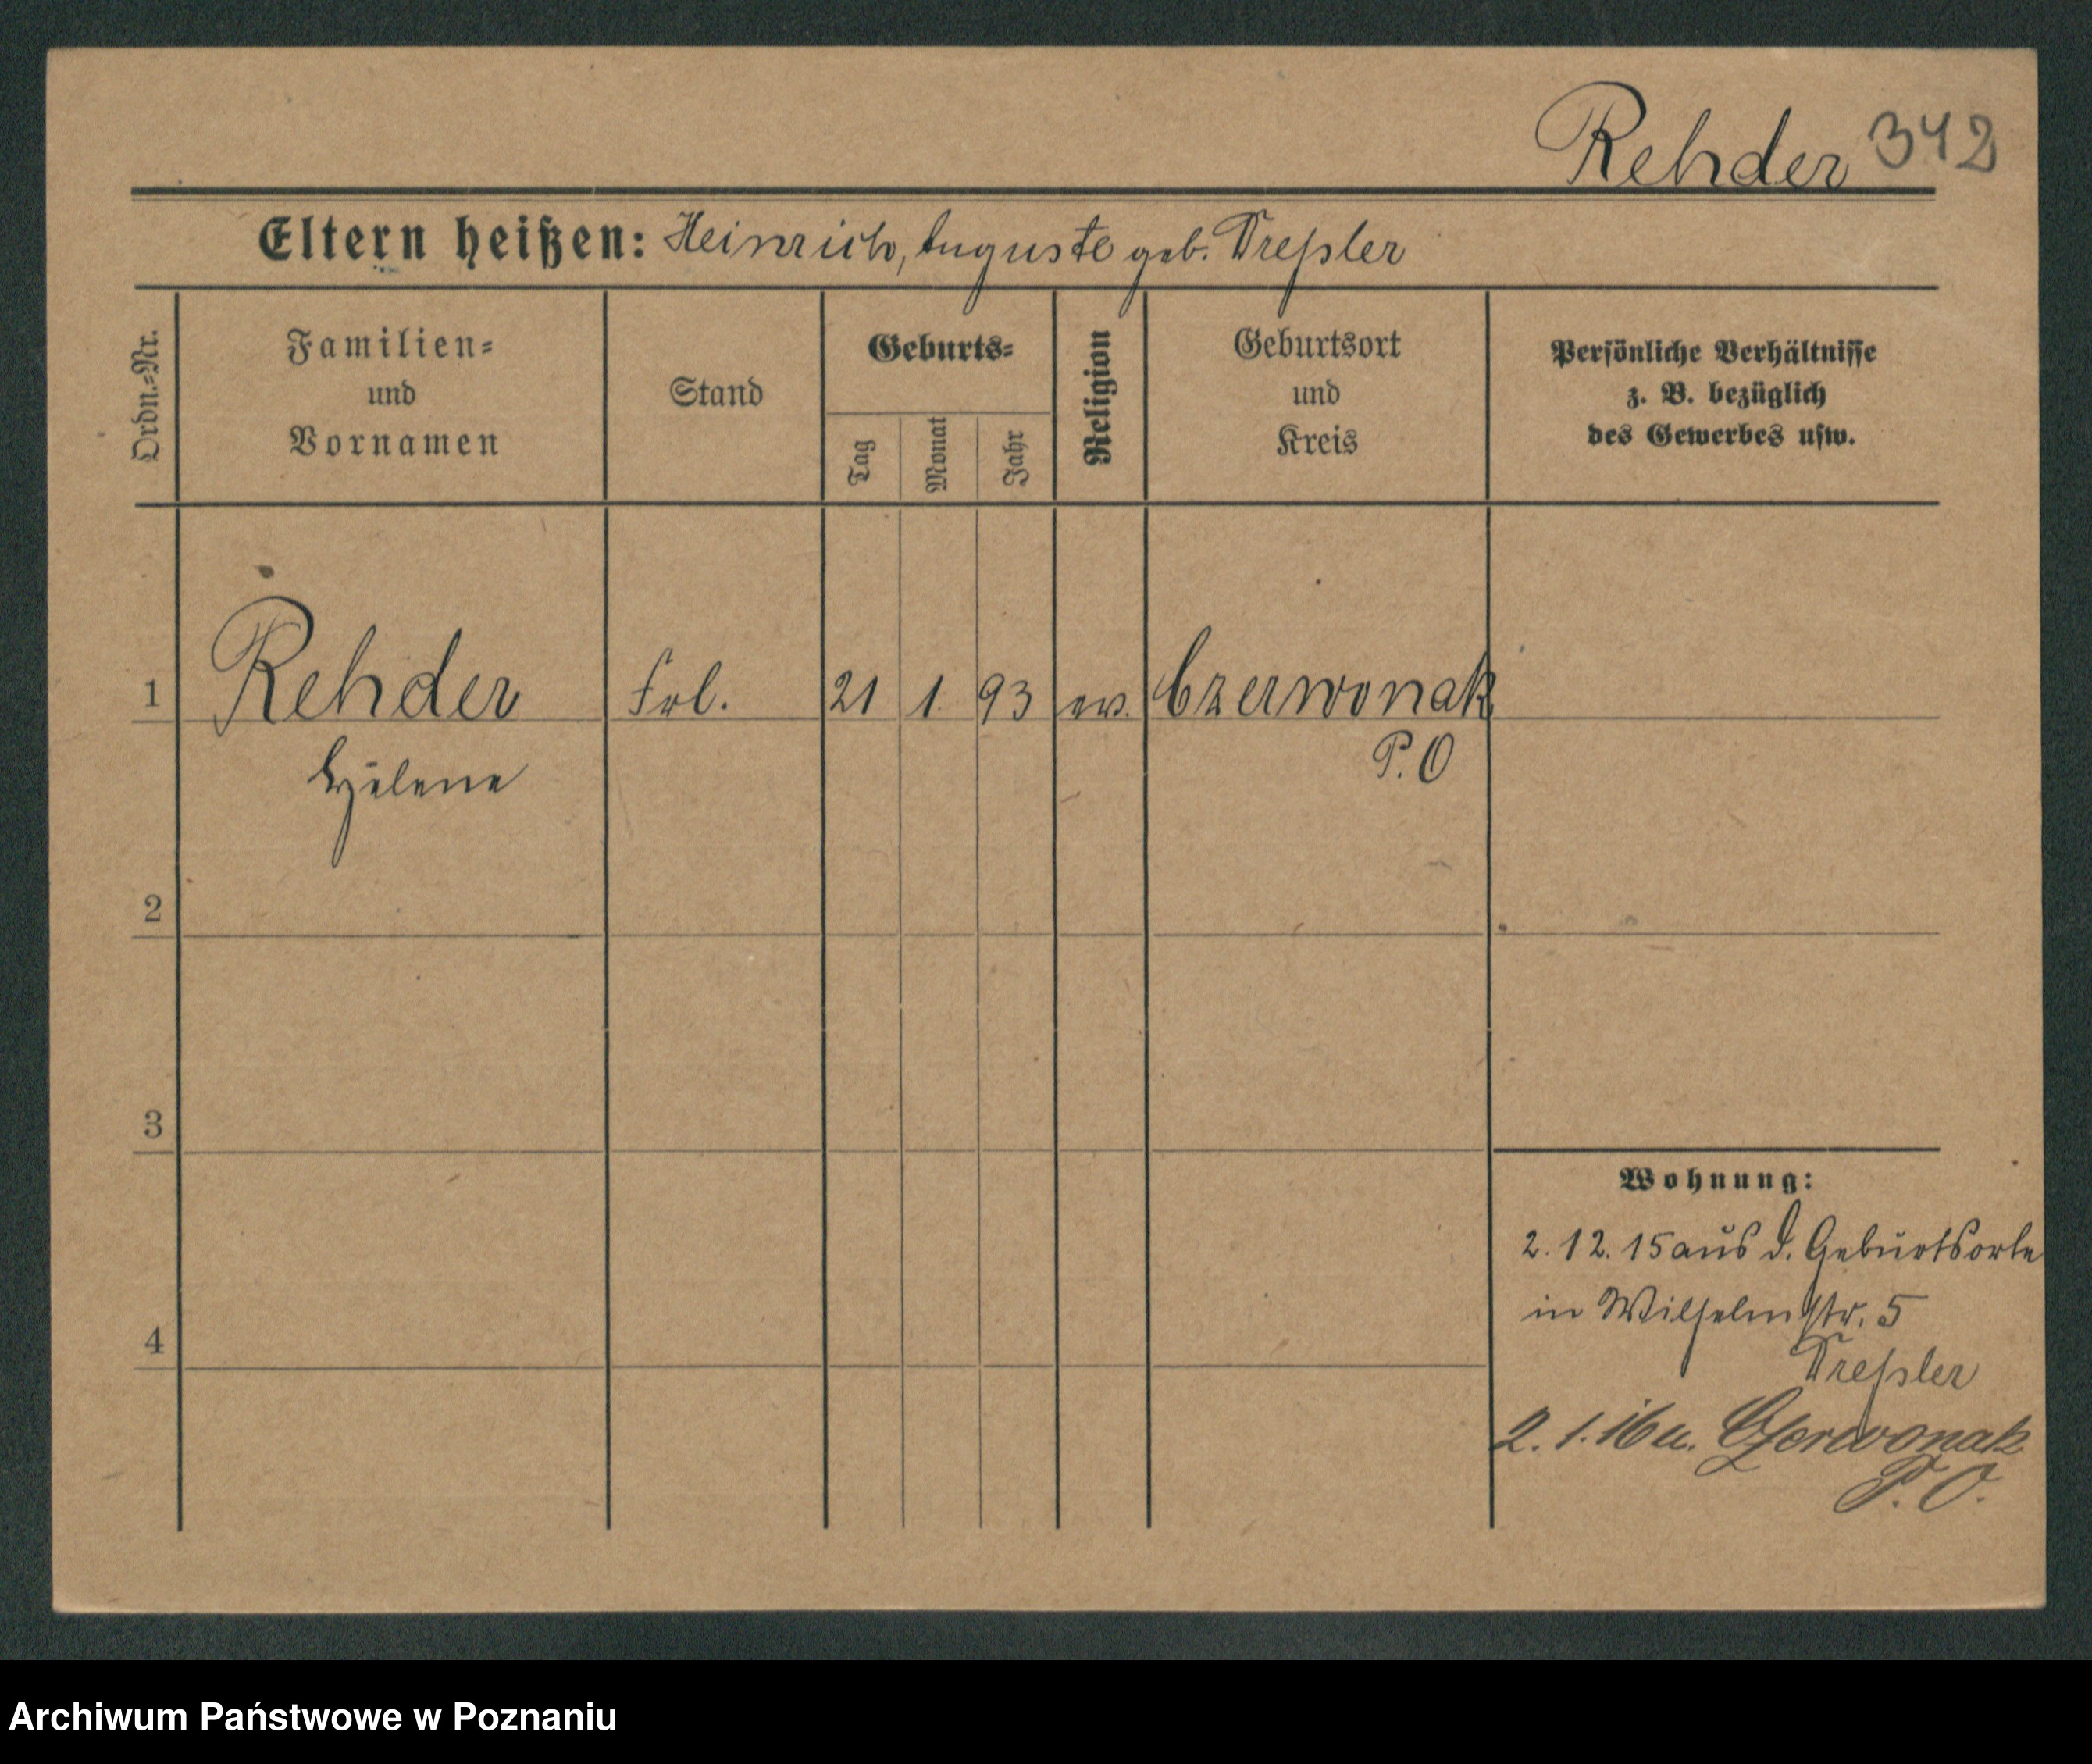 Rehder 342
Eltern heißen: Heinrich, Auguste geb. Dreßler
Ordn.=Nr.
Familien=
und
Vornamen
Stand
Geburts=
Tag
Monat
Jahr
Religion
Geburtsort
und
Kreis
Persönliche Verhältnisse
z. B. bezüglich
des Gewerbes usw.
1 Rehder Frl. 21 1. 93 ev. Czerwonak
P. O
Helene
2
3
Wohnung:
2. 12. 15 aus d. Geburtsorte
in Wilhelmstr. 5
4
Dreßler
2. 1. 16 n. Czerwonak
P. O.
Archiwum Państwowe w Poznaniu